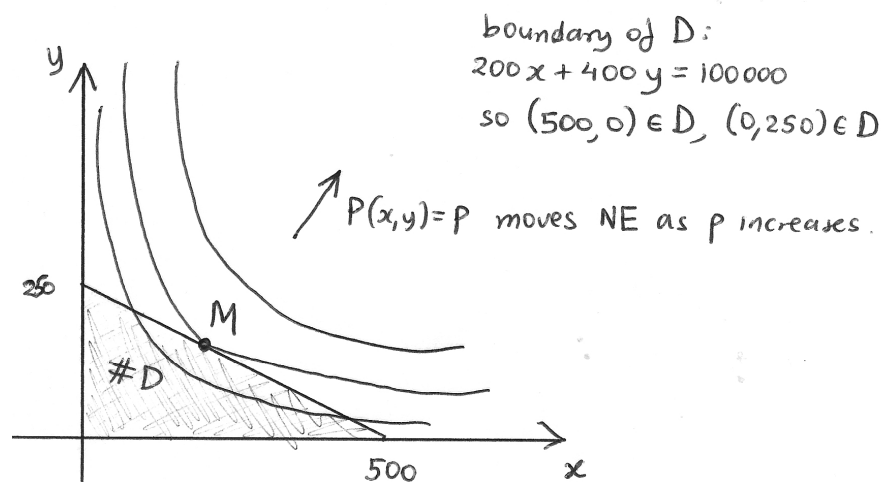 boundary of D:
200x + 400y = 100000
so (500,0) ∈ D, (0,250) ∈ D
y
P(x,y)=P moves NE as p increases.
250
M
#D
500
x